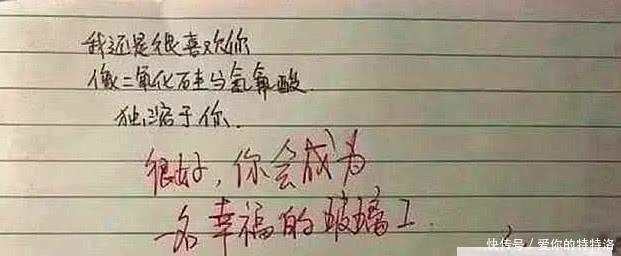 我还是很喜欢你
像二氧化硅与氢氟酸
独溶于你.
很好,你会成为
一名幸福的玻璃工.
快传号/爱你的特特洛